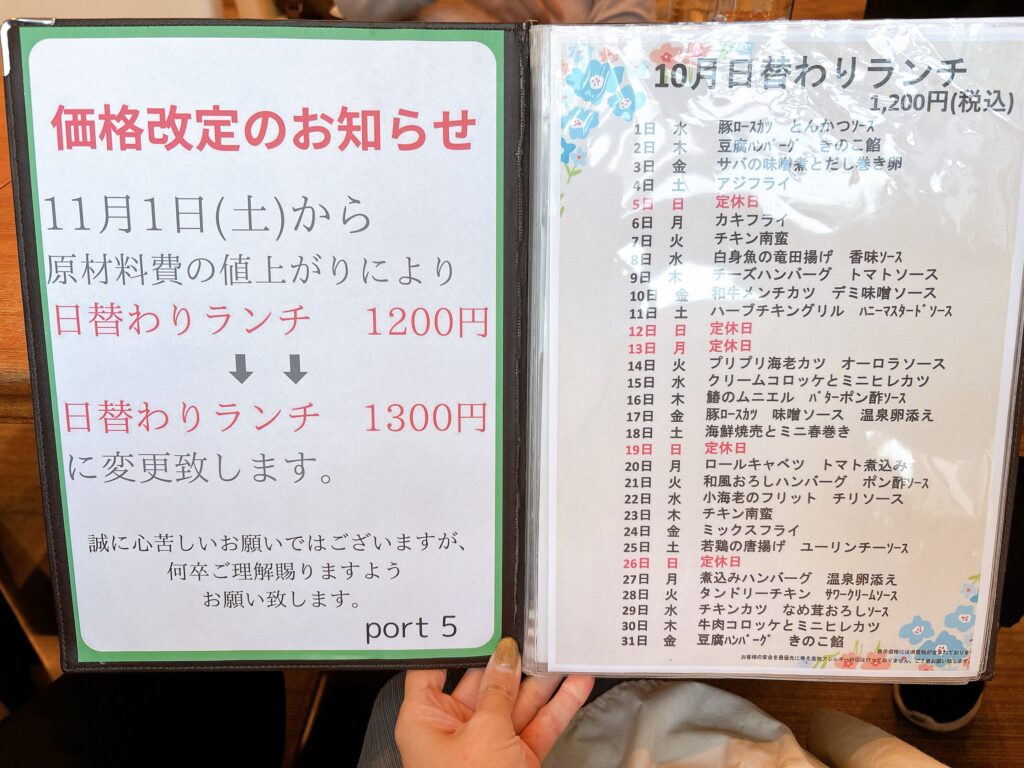 価格改定のお知らせ
11月1日(土)から
原材料費の値上がりにより
日替わりランチ 1200円
日替わりランチ 1300円
に変更致します。
誠に心苦しいお願いではございますが、
何卒ご理解賜りますよう
お願い致します。
port 5
10月日替わりランチ
1,200円(税込)
1日 水 豚ﾛｰｽｶﾂ とんかつｿｰｽ
2日 木 豆腐ﾊﾝﾊﾞｰｸﾞ きのこ餡
3日 金 サバの味噌煮とだし巻き卵
4日 土 アジフライ
5日 日 定休日
6日 月 カキフライ
7日 火 チキン南蛮
8日 水 白身魚の竜田揚げ 香味ｿｰｽ
9日 木 チーズハンバーグ トマトソース
10日 金 和牛メンチカツ デミ味噌ソース
11日 土 ハーブチキングリル ﾊﾆｰﾏｽﾀｰﾄﾞｿｰｽ
12日 日 定休日
13日 月 定休日
14日 火 プリプリ海老カツ オーロラソース
15日 水 クリームコロッケとミニヒレカツ
16日 木 鰆のムニエル ﾊﾞﾀｰポン酢ｿｰｽ
17日 金 豚ﾛｰｽｶﾂ 味噌ソース 温泉卵添え
18日 土 海鮮焼売とミニ春巻き
19日 日 定休日
20日 月 ロールキャベツ トマト煮込み
21日 火 和風おろしハンバーグ ポン酢ｿｰｽ
22日 水 小海老のフリット チリソース
23日 木 チキン南蛮
24日 金 ミックスフライ
25日 土 若鶏の唐揚げ ユーリンチーｿｰｽ
26日 日 定休日
27日 月 煮込みハンバーグ 温泉卵添え
28日 火 タンドリーチキン ｻﾜｰｸﾘｰﾑｿｰｽ
29日 水 チキンカツ なめ茸おろしｿｰｽ
30日 木 牛肉コロッケとミニヒレカツ
31日 金 豆腐ﾊﾝﾊﾞｰｸﾞ きのこ餡
表示価格には消費税が含まれております
お客様の安全を最優先に考え食物アレルギー対応は行っておりません。ご了承お願い致します。